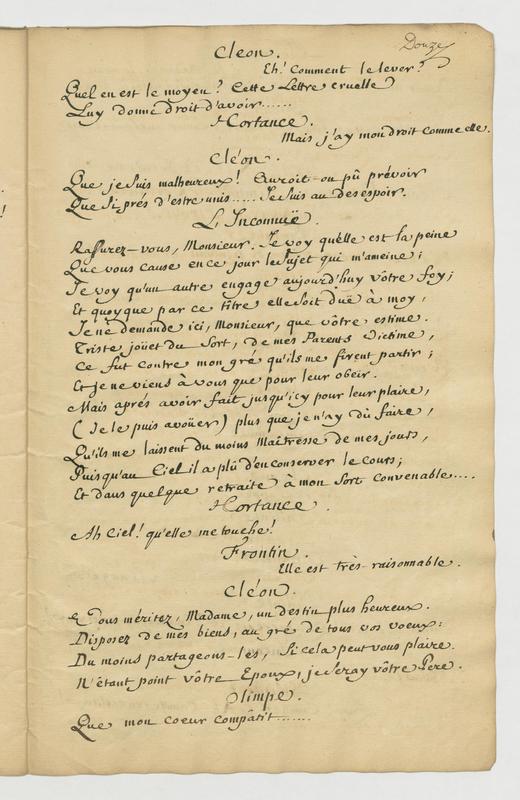 Douze
Cléon.
Eh! Comment le lever?
Quel en est le moyen? Cette Lettre cruelle
Luy donne droit d'avoir......
Hortance.
Mais j'ay mon droit comme elle.
Cléon.
Que je suis malheureux! Auroit-on pû prévoir
Que si prés d'estre unis..... Je suis au desespoir.
L'Inconnuë.
Rassurez-vous, Monsieur. Je voy quelle est la peine
Que vous cause en ce jour le sujet qui m'ameine;
Je voy qu'un autre engage aujourd'huy vôtre foy;
Et quoyque par ce titre elle soit duë à moy,
Je ne demande ici, Monsieur, que vôtre estime.
Triste joüet du Sort, de mes Parents Victime,
Ce fut contre mon gré qu'ils me firent partir;
Et je ne viens à vous que pour leur obeïr.
Mais aprés avoir fait jusqu'icy pour leur plaire,
(Je le puis avoüer) plus que je n'ay dû faire,
Qu'ils me laissent du moins Maîtresse de mes jours,
Puisqu'au Ciel il a plû d'en conserver le cours;
Et dans quelque retraite à mon sort convenable....
Hortance.
Ah Ciel! qu'elle me touche!
Frontin.
Elle est très-raisonnable.
Cléon.
Vous méritez, Madame, un destin plus heureux.
Disposez de mes biens, au gré de tous vos voeux:
Du moins partageons-les, si cela peut vous plaire.
N'étant point vôtre Epoux, je seray vôtre Pere.
Olimpe.
Que mon coeur compâtit.......